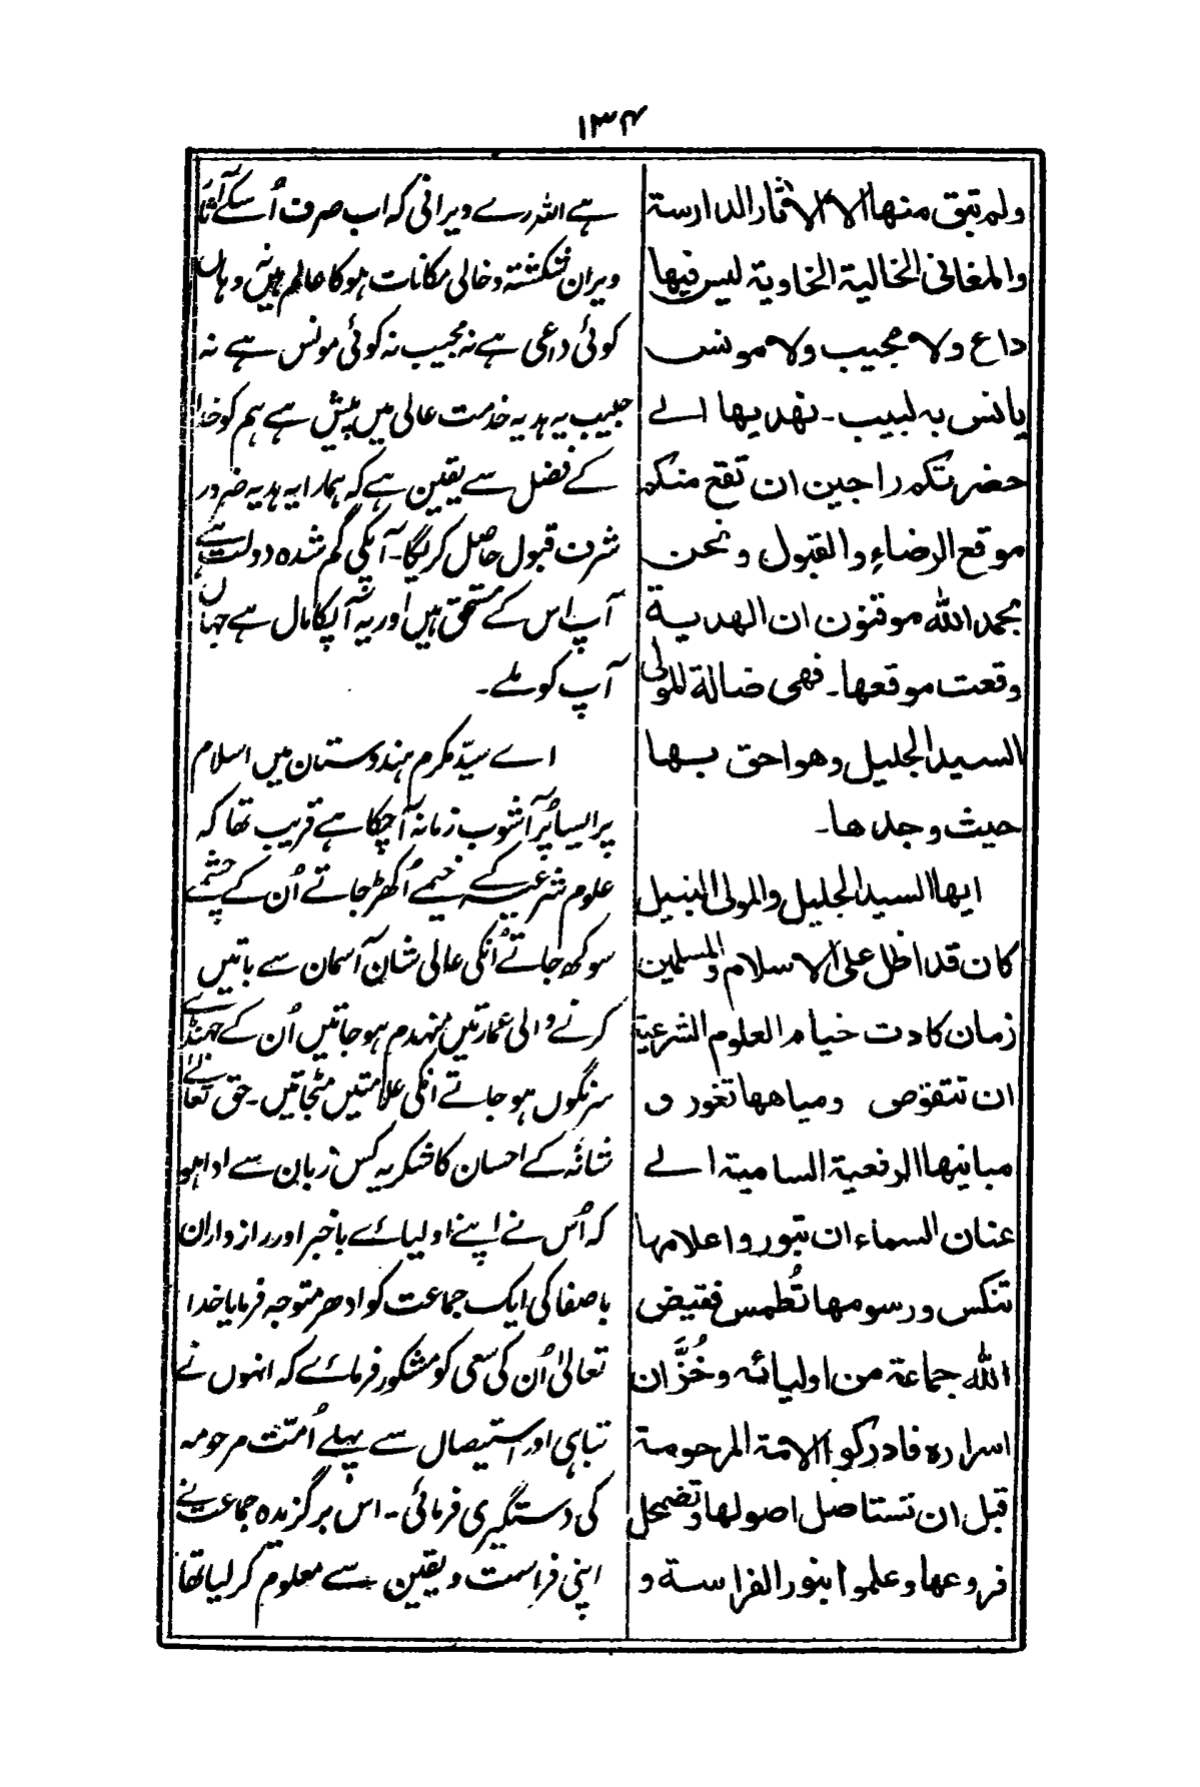 ۱۳۴
ولم تبق منها الا الاثار الدارسة
والمغانى الخالية الخاوية ليس فيها
داع ولا مجيب ولا مونس
يانس به لبيب ـ نهديها الے
حضرتكم راجين ان تقع منكم
موقع الرضاء والقبول ونحن
بحمد الله موقنون ان الهدية
وقعت موقعها ـ فهى ضالة للمولى
السيد الجليل وهو احق بها
حيث وجدها ـ
ايها السيد الجليل والمولى النبيل
كان قد اظل على الاسلام والمسلمين
زمان كادت خيام العلوم الشرعية
ان تتقوض ومياهها تغور و
مبانيها الرفعية السامية الے
عنان السماء ان تبور واعلامها
تنكس ورسومها تُطمس فقيض
الله جماعة من اوليائه وخُزَّان
اسراره فادركوا الامة المرحومة
قبل ان تستاصل اصولها وتضمحل
فروعها وعلموا بنور الفراسة و
ہے اللہ رے ویرانی کہ اب صرف اُسکے آثار
ویران شکستہ و خالی مکانات ہو کا عالم ہیں نہ وہاں
کوئی داعی ہے نہ مجیب نہ کوئی مونس ہے نہ
حبیب یہ ہدیہ خدمت عالی میں پیش ہے ہم کو خدا
کے فضل سے یقین ہے کہ ہمارا یہ ہدیہ ضرور
شرف قبول حاصل کریگا ۔ آپکی گم شدہ دولت ہے
آپ اس کے مستحق ہیں اور یہ آپکا مال ہے جہاں
آپ کو ملے ۔
اے سیّد مکرم ہندوستان میں اسلام
پر ایسا پُرآشوب زمانہ آچکا ہے قریب تھا کہ
علوم شرعیہ کے خیمے اُکھڑ جاتے اُن کے چشمے
سوکھ جاتے اُنکی عالی شان آسمان سے باتیں
کرنے والی عمارتیں منہدم ہو جاتیں اُن کے جھنڈے
سرنگوں ہو جاتے انکی علامتیں مٹجاتیں ۔ حق تعالےٰ
شانہٗ کے احسان کا شکریہ کس زبان سے ادا ہو
کہ اُس نے اپنے اولیائے باخبر اور رازداران
باصفا کی ایک جماعت کو ادھر متوجہ فرمایا خدا
تعالیٰ اُن کی سعی کو مشکور فرمائے کہ انہوں نے
تباہی اور استیصال سے پہلے اُمت مرحومہ
کی دستگیری فرمائی ۔ اس برگزیدہ جماعت نے
اپنی فراست و یقین سے معلوم کر لیا تھا